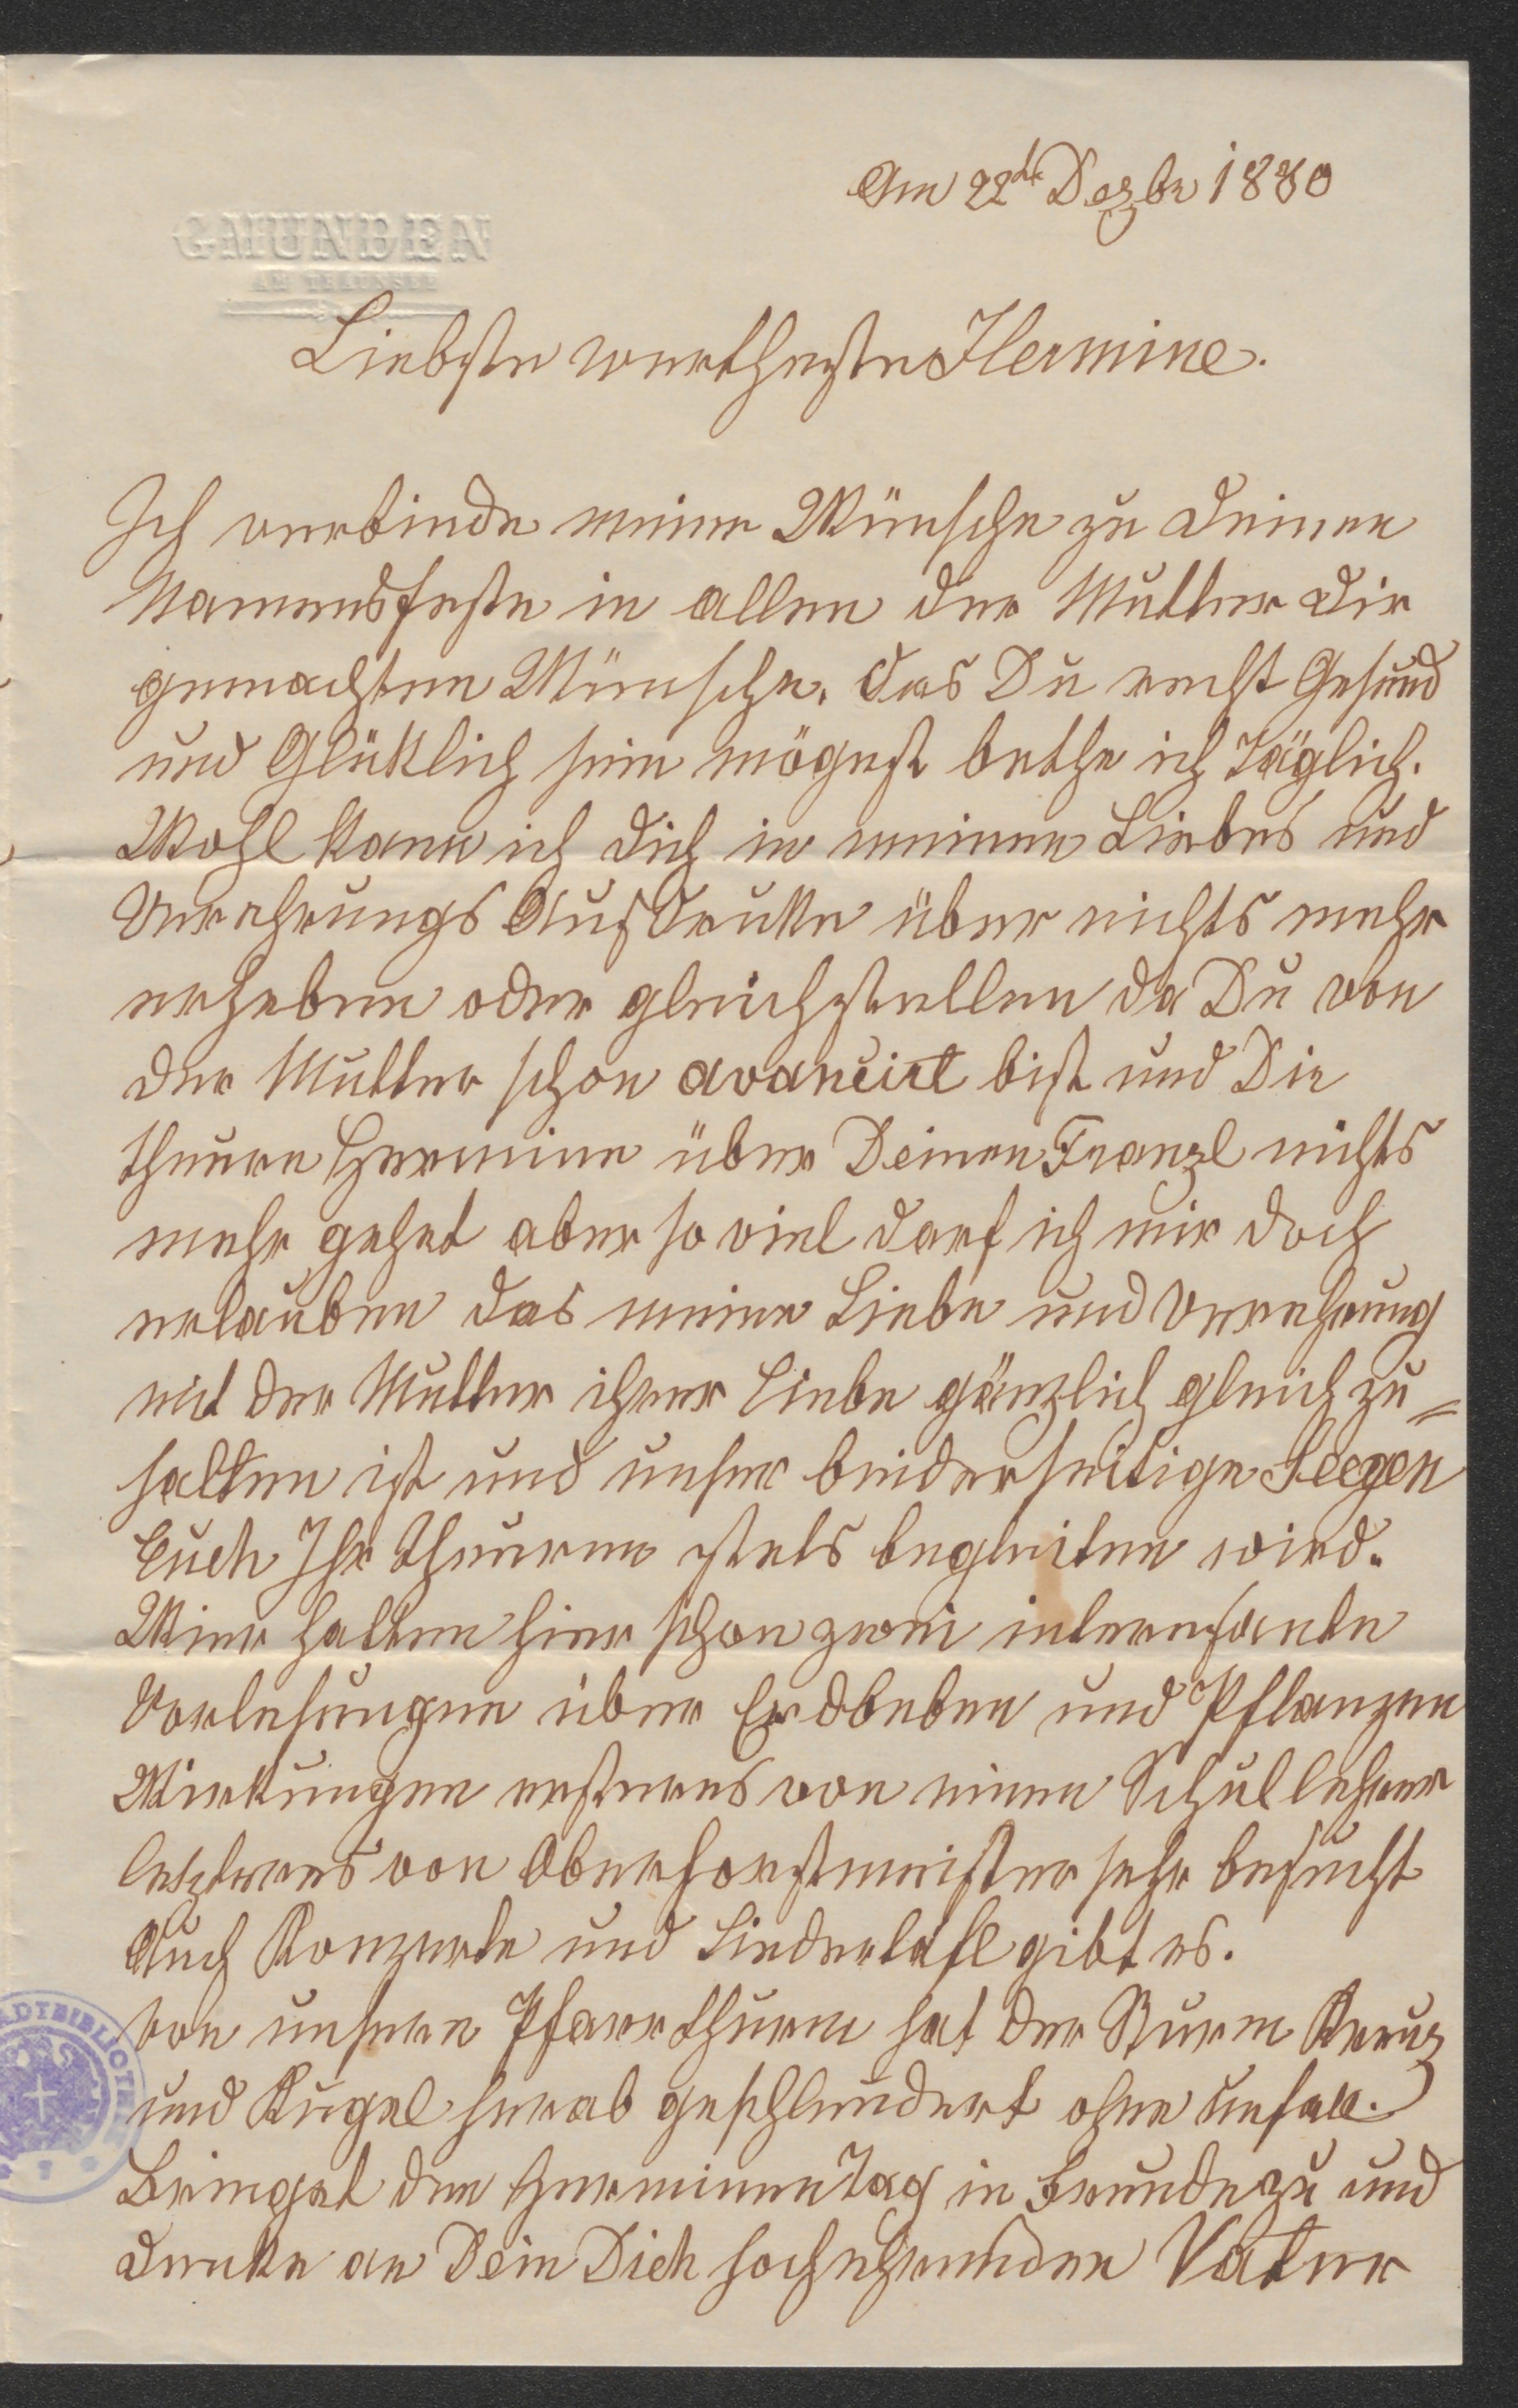 GMUNDEN
AM TRAUNSEE
Am 22t Dezbr 1880
Liebste wertheste Hermine.
Ich verbinde meine Wünsche zu deinen
Namensfeste in allen der Mutter dir
gemachten Wünsche, das Du recht Gesund
und Glüklich sein mögest bethe ich Täglich.
Wohl kann ich dich in meinen Liebes und
Verehrungs Ausdruke über nichts mehr
erheben oder gleichstellen da Du von
der Mutter schon avancirt bist und Die
theure Hermine über Deinen Franzl nichts
mehr gehet aber so viel darf ich mir doch
erlauben das meine Liebe und Verehrung
mit der Mutter ihrer Liebe gänzlich gleich zu=
halten ist und unser beiderseitige Seegen
Euch Ihr theuren stets begleiten wird.
Wier hatten hier schon zwei interesante
Vorlesungen über Erdbeben und Pflanzen
Wirkungen ersteres von einen Schullehrer
letzteres von Oberforstmeister sehr besucht
Auch Konzerte und Liedertafl gibt es.
Von unsern Pfarrthurm hat der Sturm Kreuz
und Kugel herab geschleudert ohne Unfall.
Bringet den Herminen Tag in Freude zu und
denke an Dein Dich hochehrenden Vater